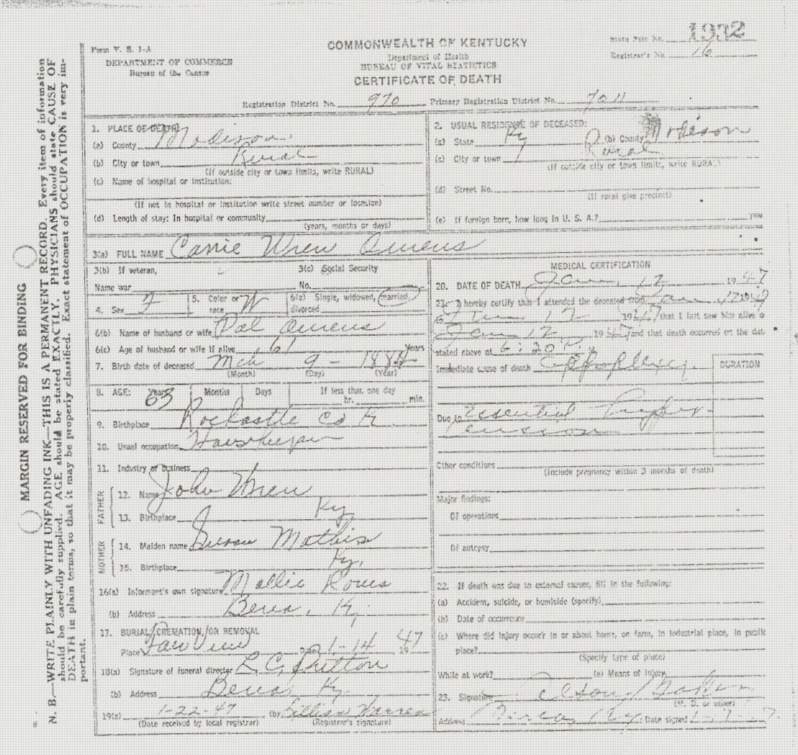 MARGIN RESERVED FOR BINDING
N. B.—WRITE PLAINLY WITH UNFADING INK—THIS IS A PERMANENT RECORD. Every item of information
should be carefully supplied. AGE should be stated EXACTLY. PHYSICIANS should state CAUSE OF
DEATH in plain terms, so that it may be properly classified. Exact statement of OCCUPATION is very im-
portant.
Form V. S. 1-A
DEPARTMENT OF COMMERCE
Bureau of the Census
COMMONWEALTH OF KENTUCKY
Department of Health
BUREAU OF VITAL STATISTICS
CERTIFICATE OF DEATH
State File No. 1932
Registrar's No. 16
Registration District No. 970 Primary Registration District No. 7011
1. PLACE OF DEATH:
(a) County Madison
(b) City or town Rural
(If outside city or town limits, write RURAL)
(c) Name of hospital or institution:
(If not in hospital or institution write street number or location)
(d) Length of stay: In hospital or community
(years, months or days)
2. USUAL RESIDENCE OF DECEASED:
(a) State Ky (b) County Madison
(c) City or town Rural
(If outside city or town limits, write RURAL)
(d) Street No.
(If rural give precinct)
(e) If foreign born, how long in U. S. A.? years
3(a) FULL NAME Carrie Wren Owens
3(b) If veteran,
Name war
3(c) Social Security
No.
4. Sex F 5. Color or race W 6(a) Single, widowed, married, divorced
6(b) Name of husband or wife Dal Owens
6(c) Age of husband or wife if alive 61 Years
7. Birth date of deceased Mch 9 - 1884
(Month) (Day) (Year)
8. AGE: Years Months Days If less than one day
63 hr. min.
9. Birthplace Rockastle Co K
10. Usual occupation Housekeeper
11. Industry or business
FATHER
12. Name John Wren
13. Birthplace Ky
MOTHER
14. Maiden name Susan Mathis
15. Birthplace Ky.
16(a) Informant's own signature Mallie
(b) Address Berea, Ky.
17. BURIAL, CREMATION, OR REMOVAL
Place Date 1-14 1947
18(a) Signature of funeral director
(b) Address Berea Ky.
19(a) 1-22-47 (b) Lillian Warren
(Date received by local registrar) (Registrar's signature)
MEDICAL CERTIFICATION
20. DATE OF DEATH Jan. 12 1947
21. I hereby certify that I attended the deceased from Jan 12 1947
to Jan 12 1947 that I last saw her alive on
Jan 12 1947 and that death occurred on the date
stated above at 6:20 P.
Immediate cause of death Apoplexy.
DURATION
Due to Essential hyper-
tension
Other conditions
(Include pregnancy within 3 months of death)
Major findings:
Of operations
Of autopsy
22. If death was due to external causes, fill in the following:
(a) Accident, suicide, or homicide (specify)
(b) Date of occurrence
(c) Where did injury occur in or about home, on farm, in industrial place, in public
place?
(Specify type of place)
While at work? (e) Means of injury
23. Signature
(M. D. or other)
Address Berea Ky. Date signed